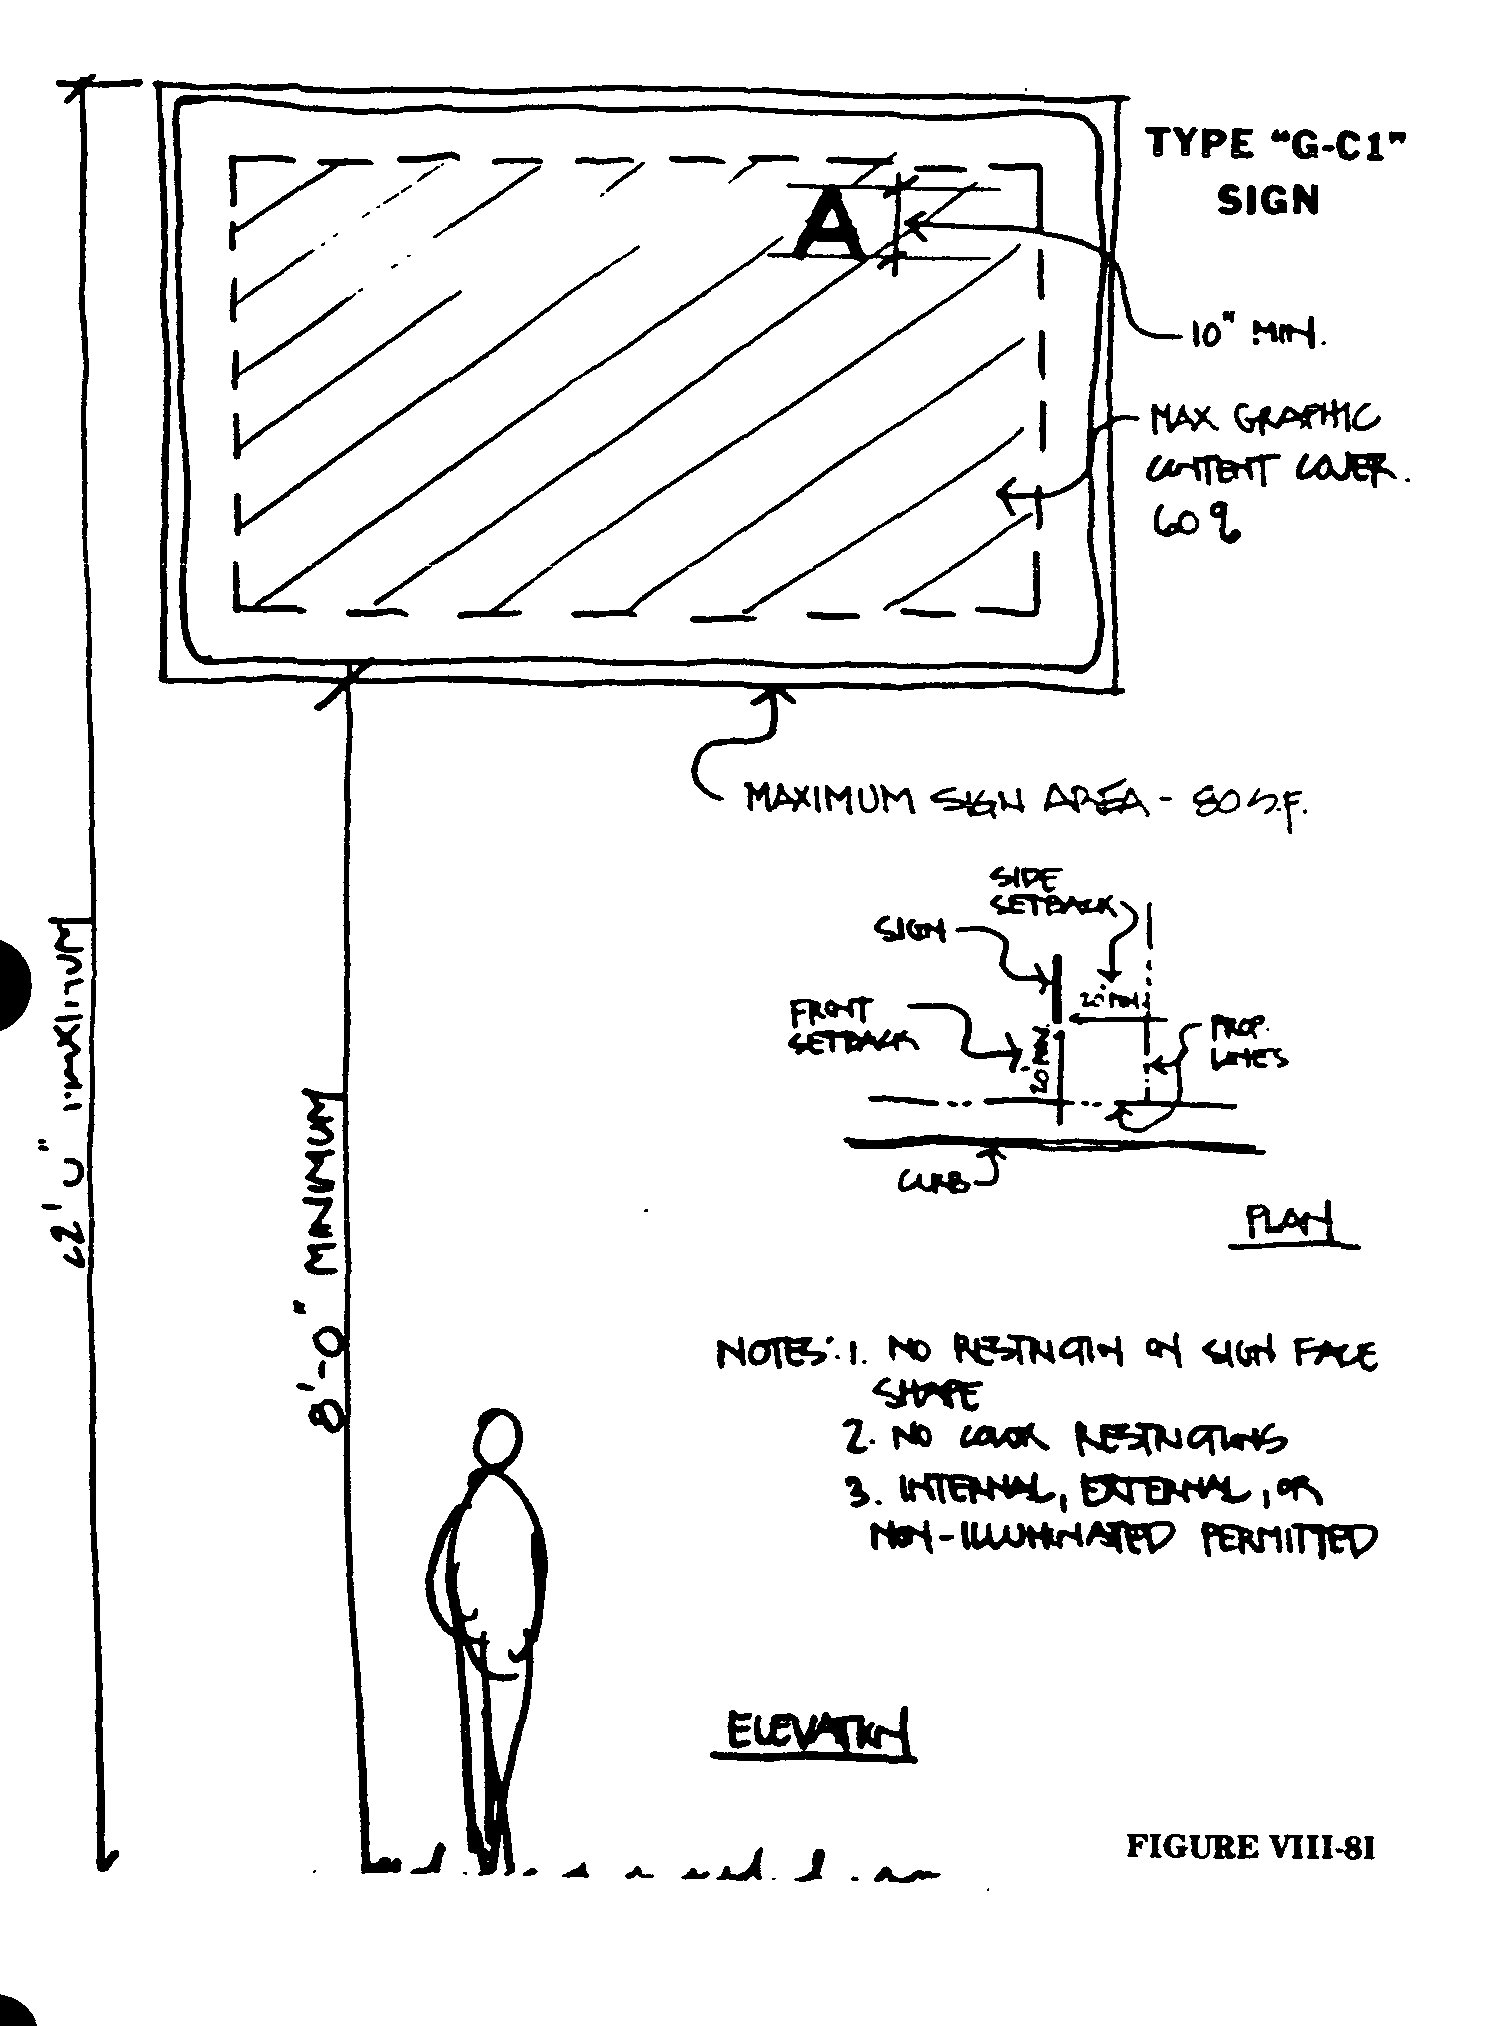 TYPE "G-C1"
SIGN
A
10" MIN.
MAX GRAPHIC
CONTENT COVER.
60%
MAXIMUM SIGN AREA - 80 S.F.
SIDE
SETBACK
SIGN
20' MIN.
FRONT
SETBACK
20' MIN.
PROP.
LINES
CURB
PLAN
MAXIMUM
8'-0" MINIMUM
NOTES: 1. NO RESTRICTION ON SIGN FACE
SHAPE
2. NO COLOR RESTRICTIONS
3. INTERNAL, EXTERNAL, OR
NON-ILLUMINATED PERMITTED
ELEVATION
FIGURE VIII-81